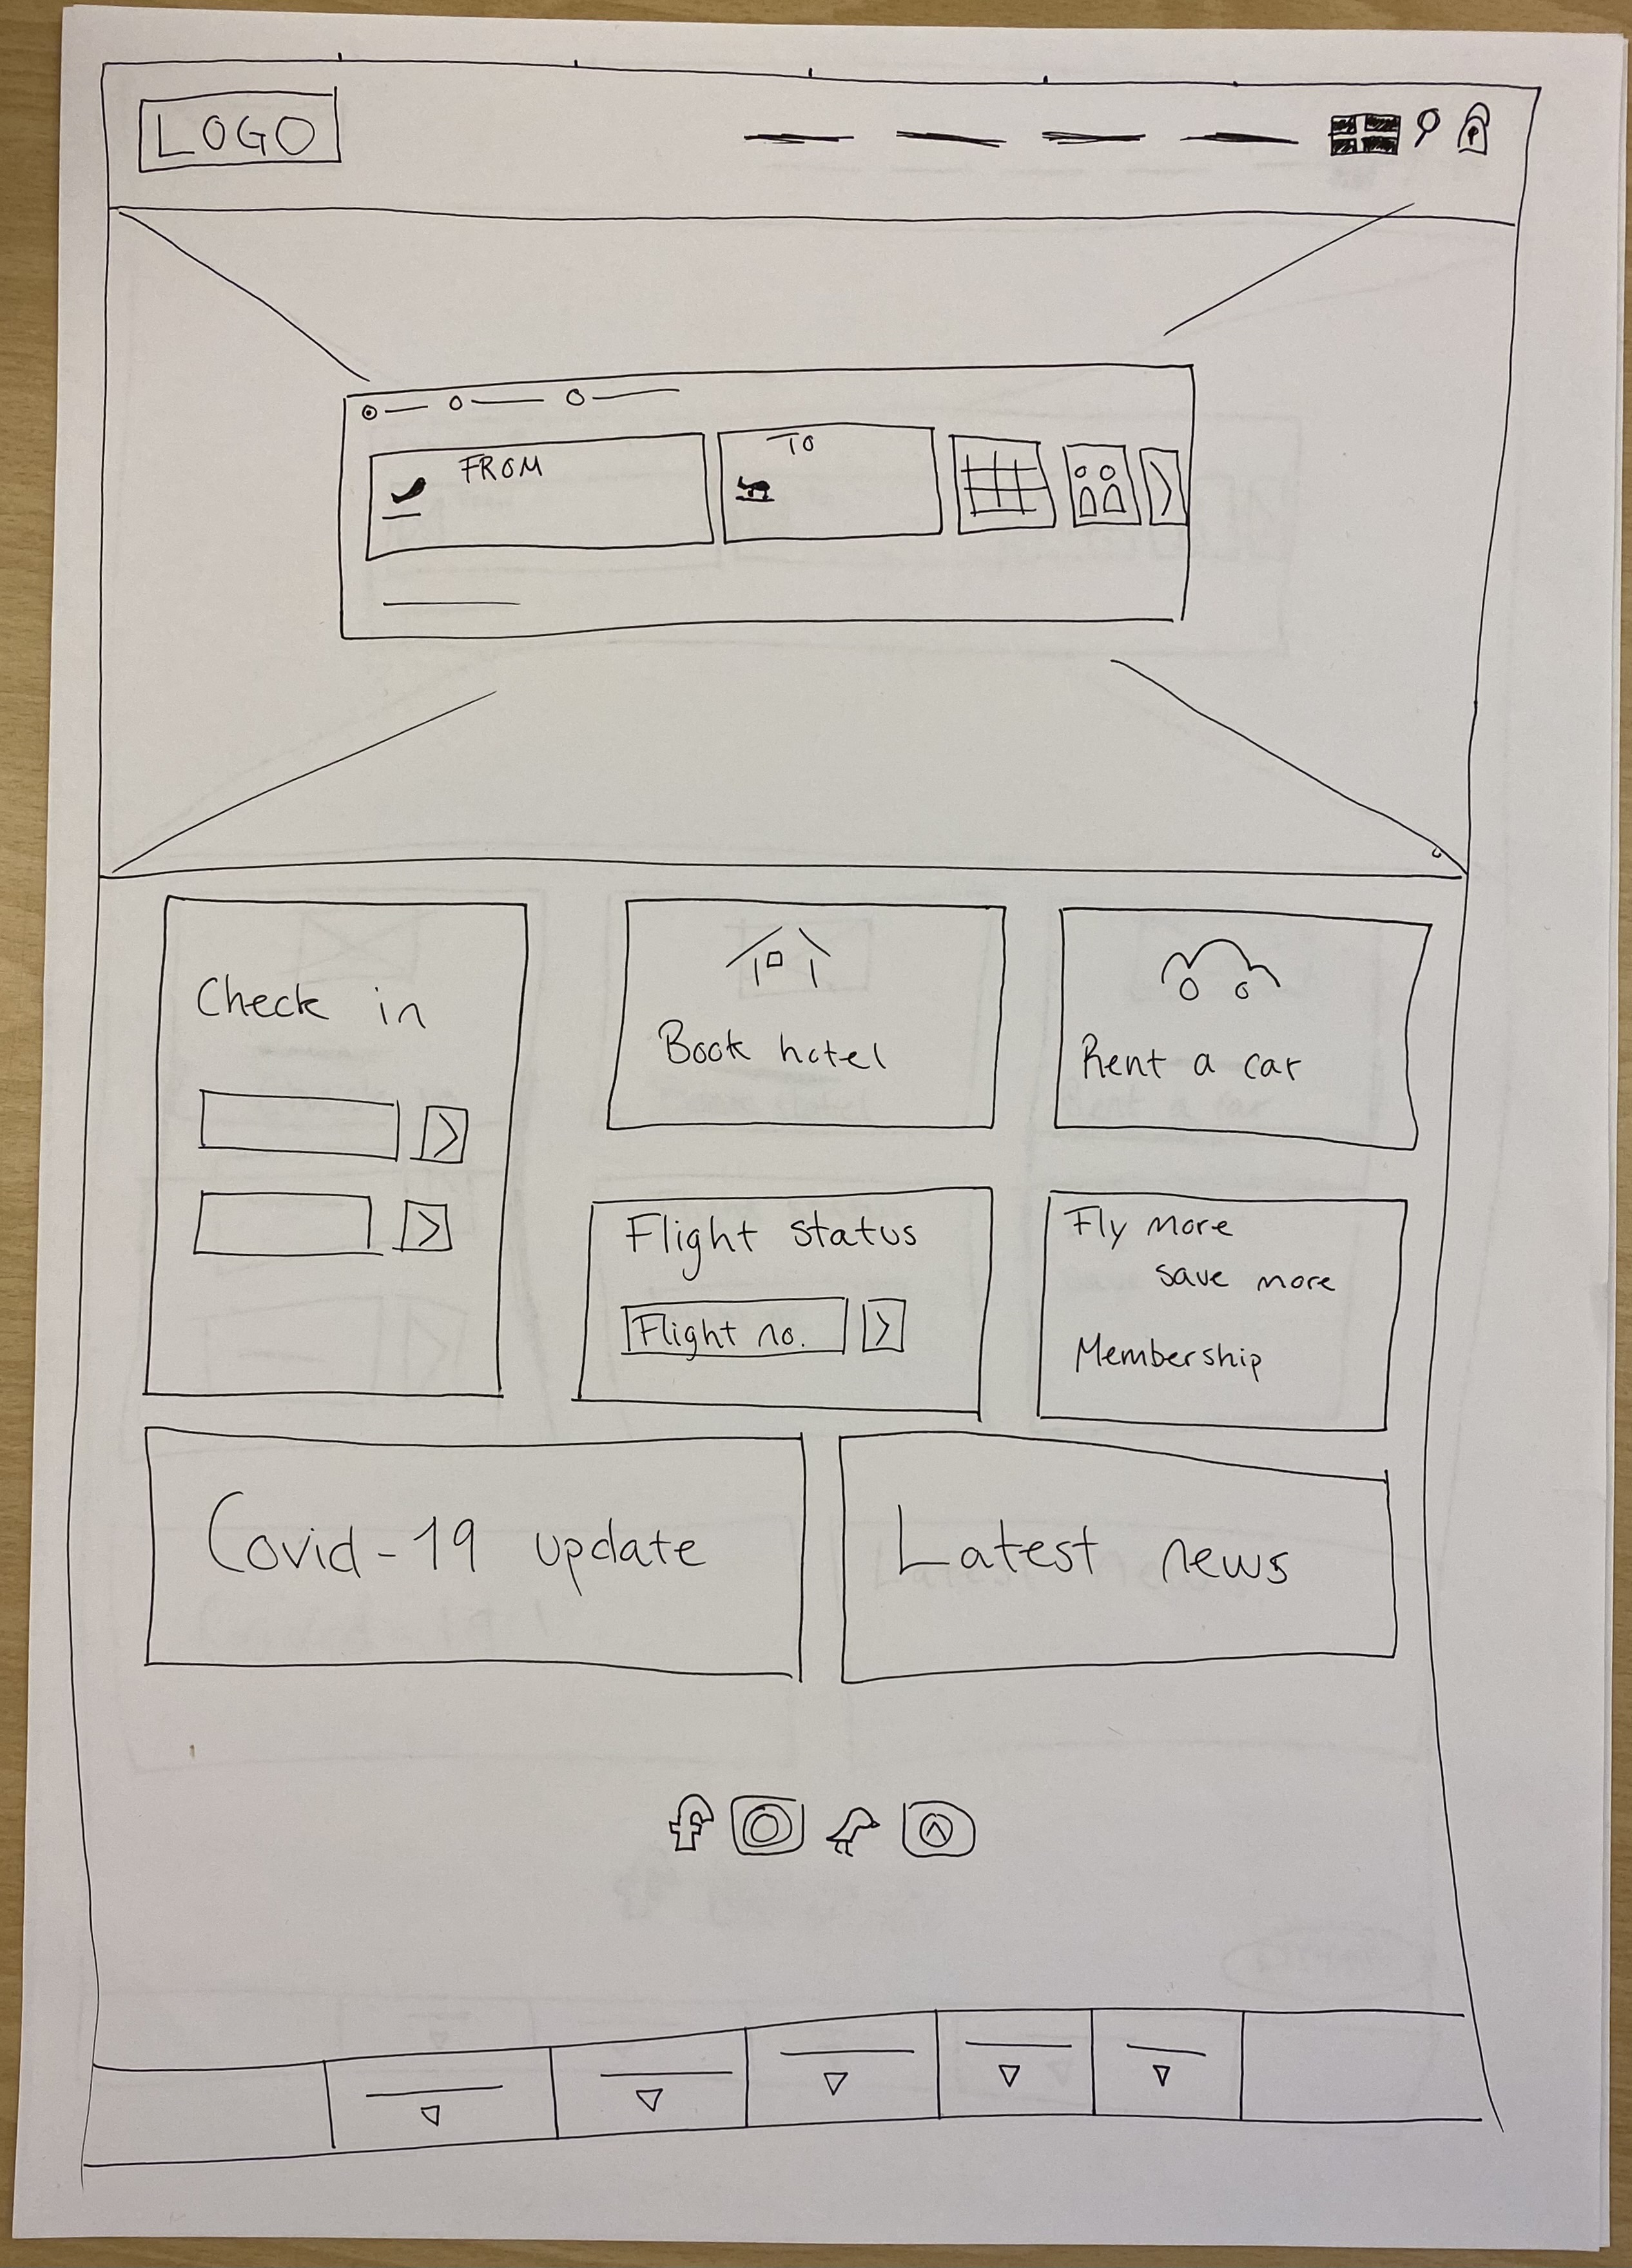 LOGO
FROM
TO
Check in
Book hotel
Rent a car
Flight status
Flight no.
Fly more
save more
Membership
Covid-19 update
Latest news
f